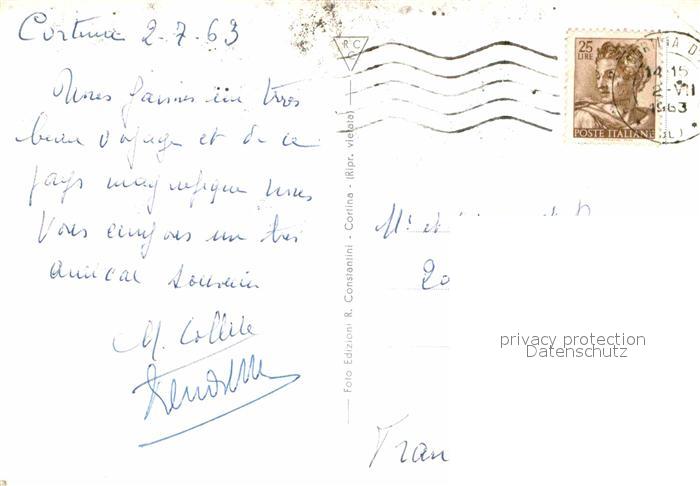 Cortina 2-7-63
Nous faisons un très
beau voyage et de ce
pays magnifique nous
Vous envoyons un très
amical souvenir
M. Collite
R C
C
Foto Edizioni R. Constantini - Cortina - (Ripr. vietata)
25
LIRE
POSTE ITALIANE
14-15
2-VII
1963
(BL)
Mr et
20
privacy protection
Datenschutz
Fran